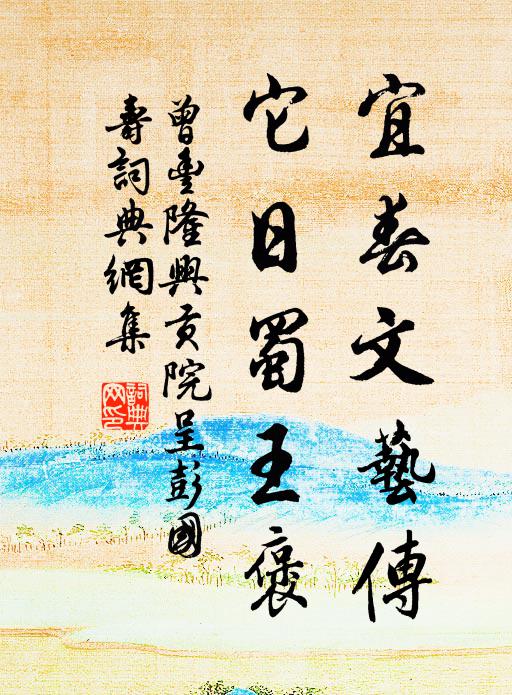 宜春文藝傳
它日蜀王褒
曾豐隆興貢院呈彭國
壽詞典網集
詞典網印